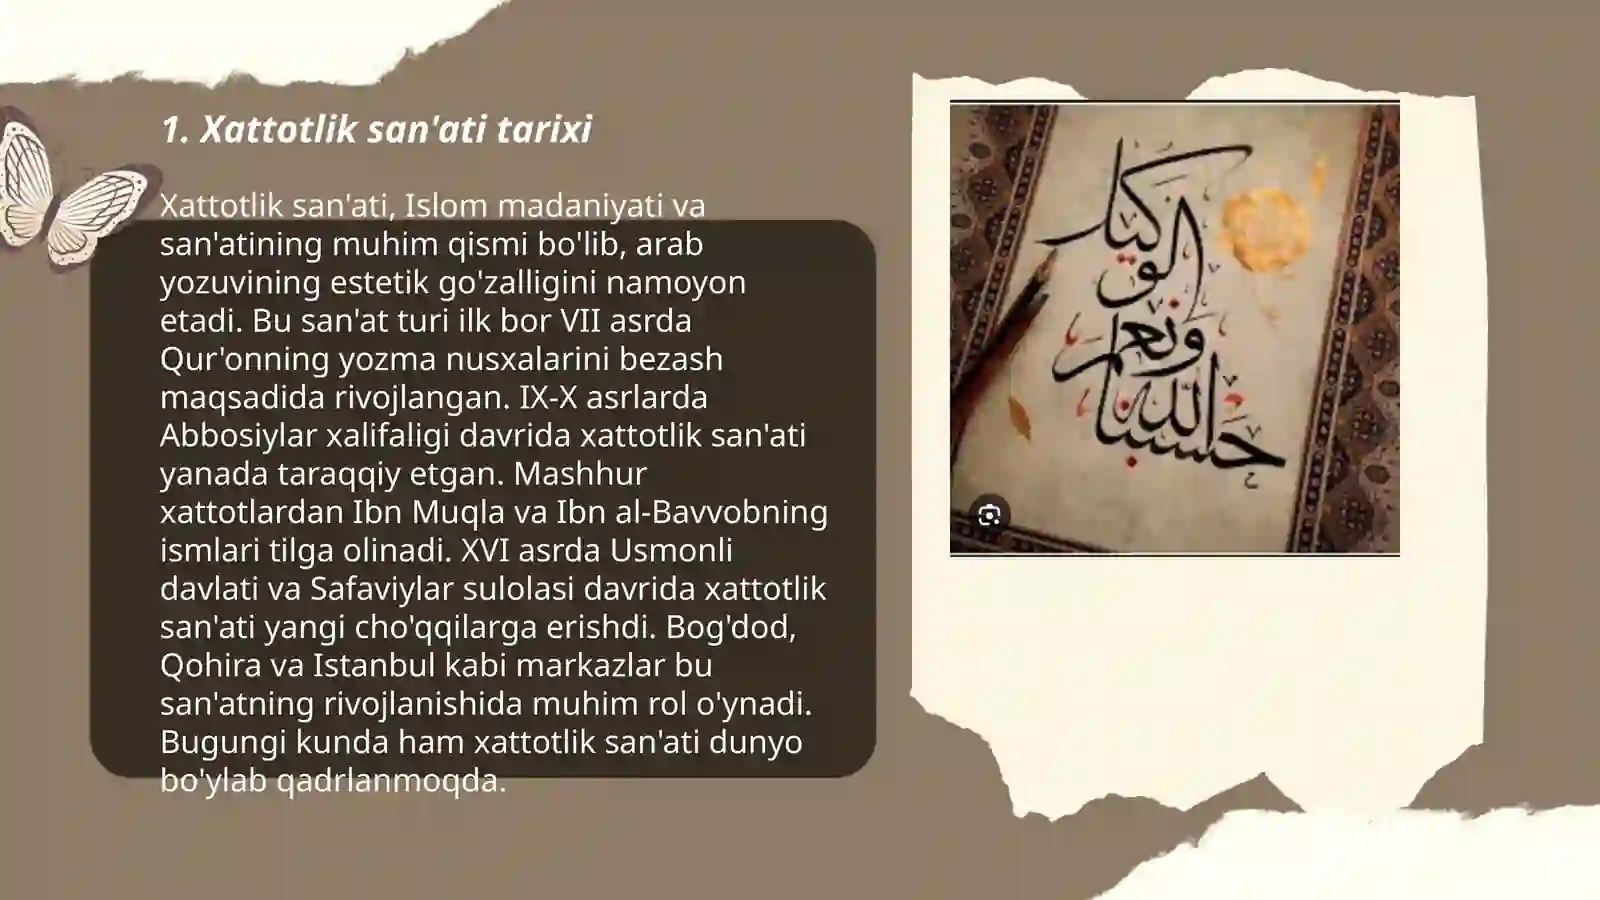 1. Xattotlik san'ati tarixi
Xattotlik san'ati, Islom madaniyati va
san'atining muhim qismi bo'lib, arab
yozuvining estetik go'zalligini namoyon
etadi. Bu san'at turi ilk bor VII asrda
Qur'onning yozma nusxalarini bezash
maqsadida rivojlangan. IX-X asrlarda
Abbosiylar xalifaligi davrida xattotlik san'ati
yanada taraqqiy etgan. Mashhur
xattotlardan Ibn Muqla va Ibn al-Bavvobning
ismlari tilga olinadi. XVI asrda Usmonli
davlati va Safaviylar sulolasi davrida xattotlik
san'ati yangi cho'qqilarga erishdi. Bog'dod,
Qohira va Istanbul kabi markazlar bu
san'atning rivojlanishida muhim rol o'ynadi.
Bugungi kunda ham xattotlik san'ati dunyo
bo'ylab qadrlanmoqda.
حسبنا الله
ونعم
الوكيل